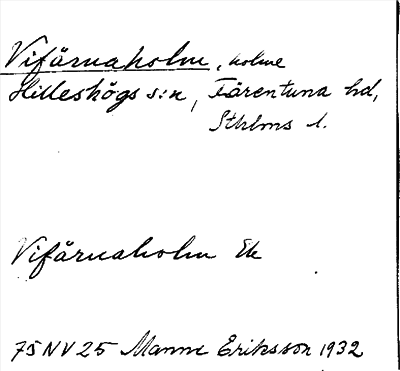 Vifärnaholm, holme
Hilleshögs s:n, Färentuna hd,
Sthlms l.
Vifärnaholm Ek
75 NV 25 Manne Eriksson 1932